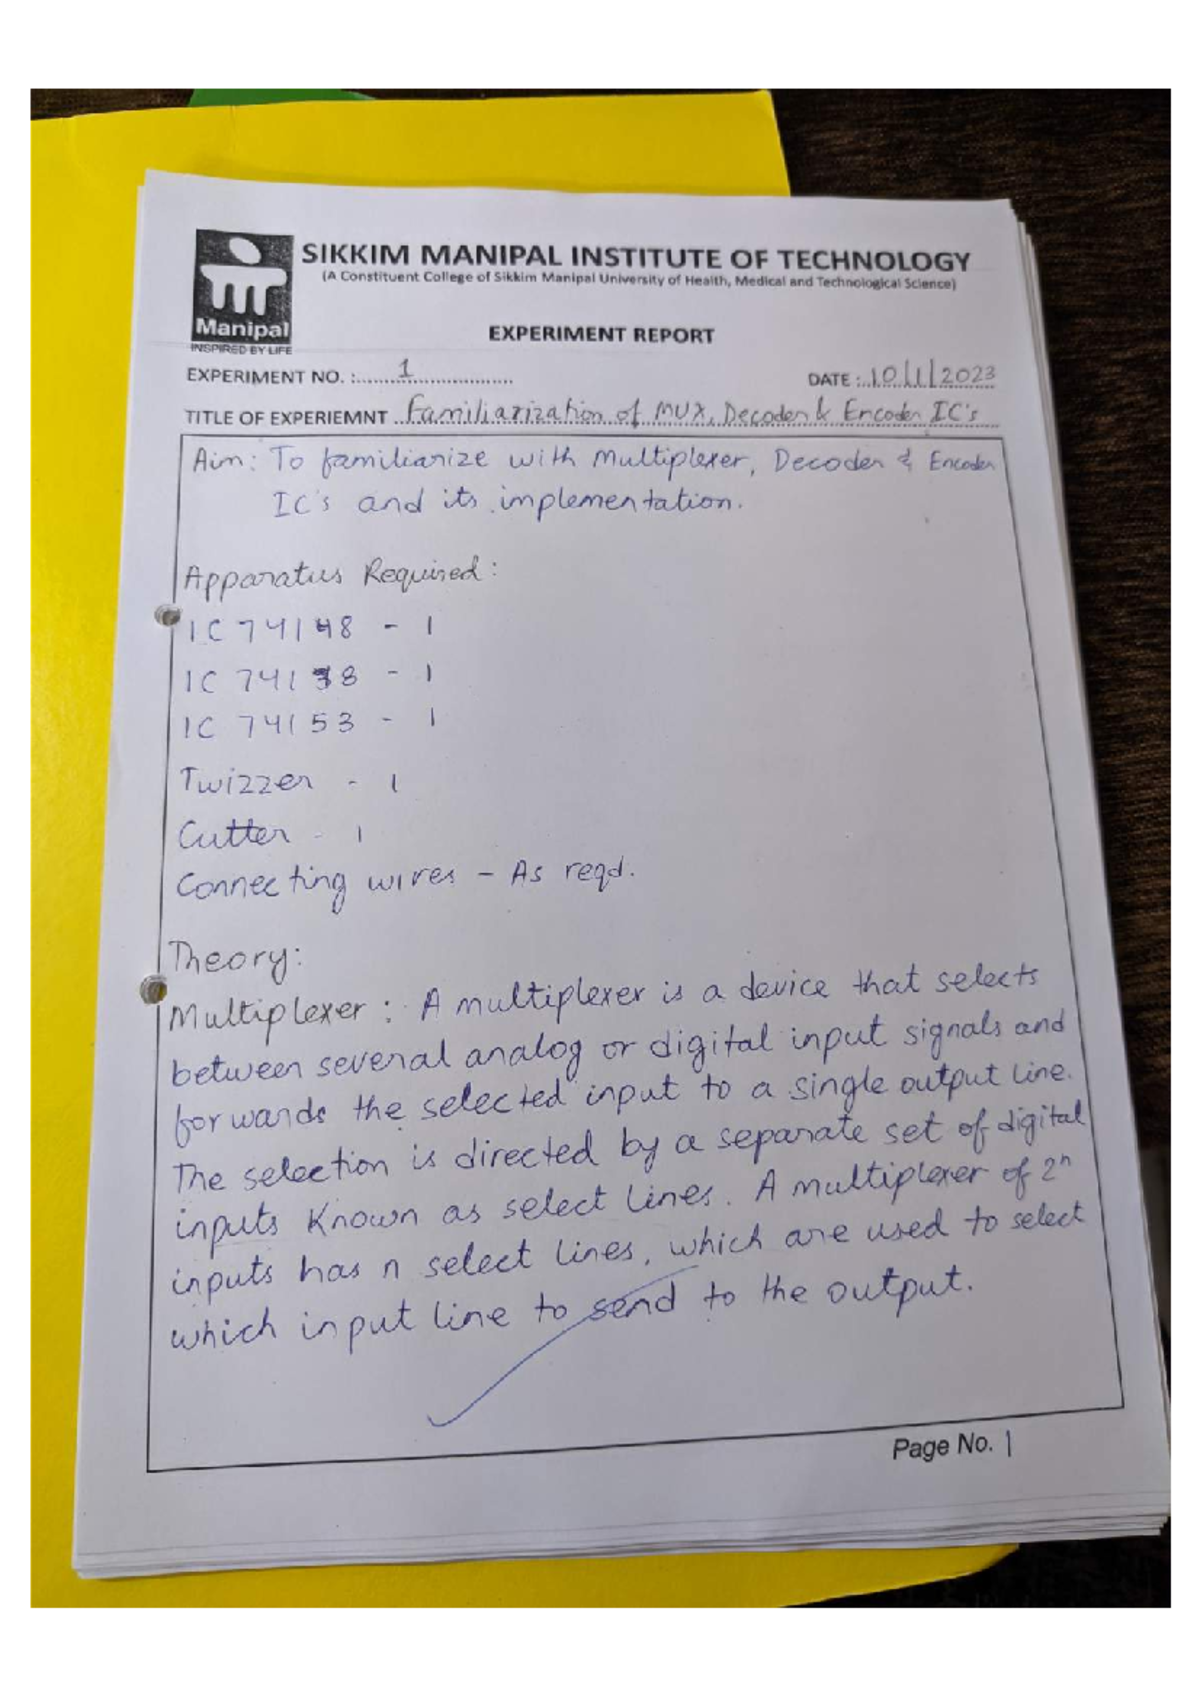 SIKKIM MANIPAL INSTITUTE OF TECHNOLOGY
(A Constituent College of Sikkim Manipal University of Health, Medical and Technological Science)
Manipal
INSPIRED BY LIFE
EXPERIMENT REPORT
EXPERIMENT NO. : 1
DATE : 10/1/2023
TITLE OF EXPERIEMNT Familiarization of MUX, Decoder & Encoder IC's
Aim: To familiarize with Multiplexer, Decoder & Encoder
IC's and its implementation.
Apparatus Required:
IC 74148 - 1
IC 74138 - 1
IC 74153 - 1
Twizzer - 1
Cutter - 1
Connecting wires - As reqd.
Theory:
Multiplexer : A multiplexer is a device that selects
between several analog or digital input signals and
forwards the selected input to a single output line.
The selection is directed by a separate set of digital
inputs known as select lines. A multiplexer of 2ⁿ
inputs has n select lines, which are used to select
which input line to send to the output.
Page No. 1